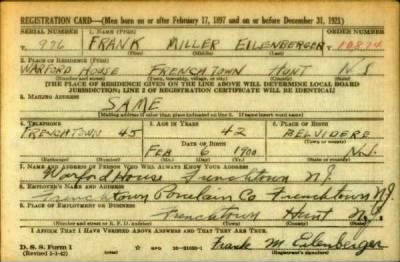 REGISTRATION CARD—(Men born on or after February 17, 1897 and on or before December 31, 1921)
SERIAL NUMBER 1. NAME (Print) ORDER NUMBER
976 FRANK MILLER EILENBERGER 10874
(First) (Middle) (Last)
2. PLACE OF RESIDENCE (Print)
WARFORD HOUSE FRENCHTOWN HUNT N.J.
(Number and street) (Town, township, village, or city) (County) (State)
[THE PLACE OF RESIDENCE GIVEN ON THE LINE ABOVE WILL DETERMINE LOCAL BOARD
JURISDICTION; LINE 2 OF REGISTRATION CERTIFICATE WILL BE IDENTICAL]
3. MAILING ADDRESS
SAME
[Mailing address if other than place indicated on line 2. If same insert word same]
4. TELEPHONE 5. AGE IN YEARS 6. PLACE OF BIRTH
FRENCHTOWN 45 42 BELVIDERE
DATE OF BIRTH (Town or county)
FEB 6 1900 N.J.
(Mo.) (Day) (Yr.) (State or country)
7. NAME AND ADDRESS OF PERSON WHO WILL ALWAYS KNOW YOUR ADDRESS
Warford House Frenchtown NJ.
8. EMPLOYER'S NAME AND ADDRESS
Frenchtown Porcelain Co Frenchtown NJ.
9. PLACE OF EMPLOYMENT OR BUSINESS
Frenchtown Hunt NJ.
(Number and street or R. F. D. number) (Town) (County) (State)
I AFFIRM THAT I HAVE VERIFIED ABOVE ANSWERS AND THAT THEY ARE TRUE.
D. S. S. Form 1
(Revised 1-1-42) GPO 16-21630-1 Frank M Eilenberger
(Registrant's signature)